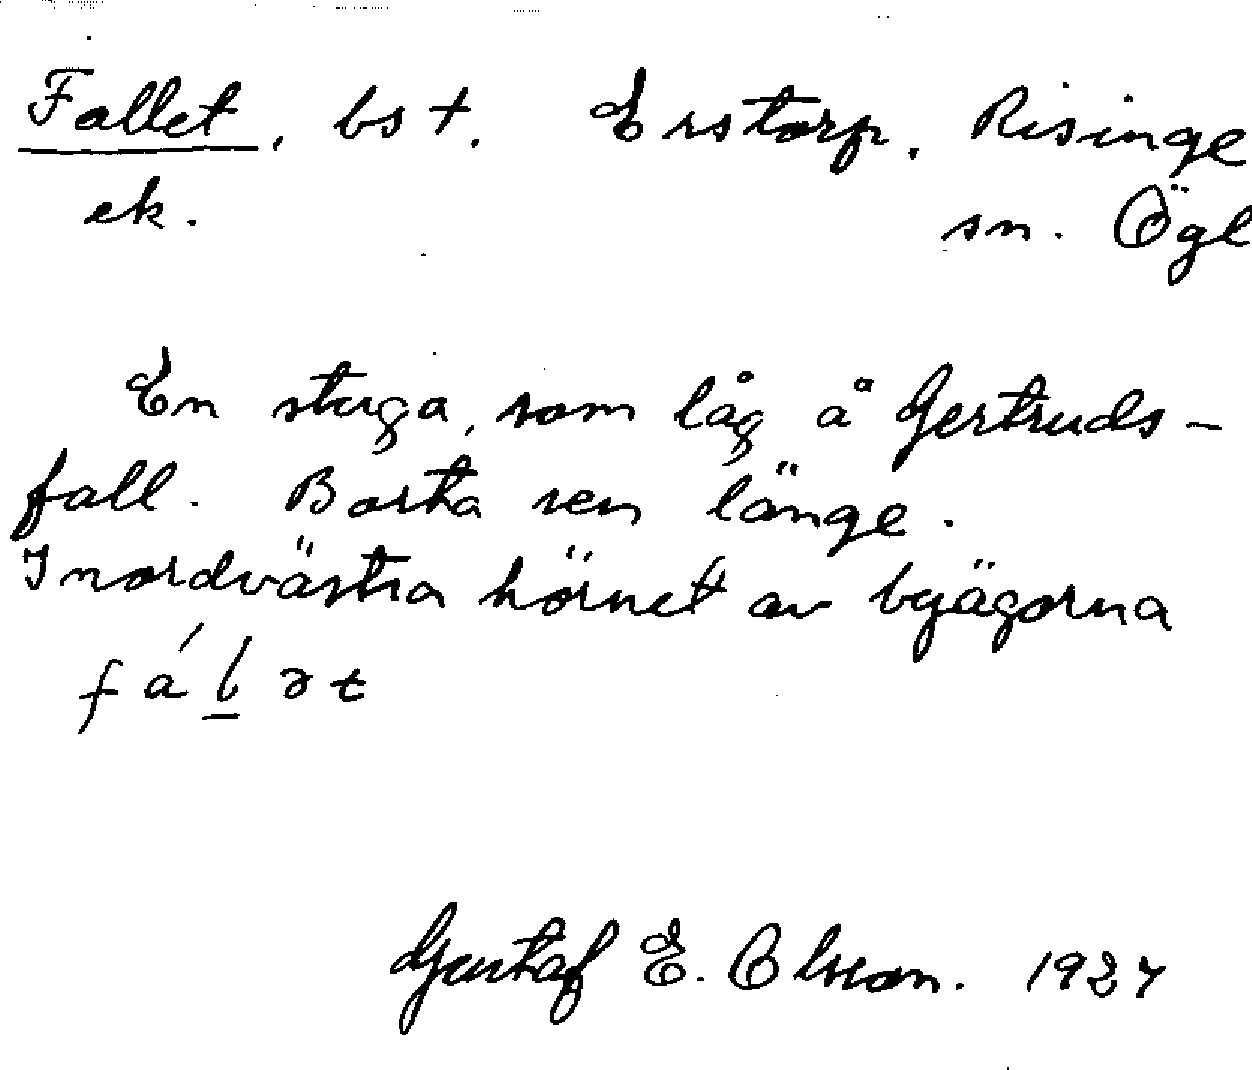 Fallet, bs +. Erstorp. Risinge
ek. sn. Ögl
En stuga, som låg å Gertruds-
fall. Borta sen länge.
I nordvästra hörnet av byägorna
fáḻət
Gustaf E. Olsson. 1927